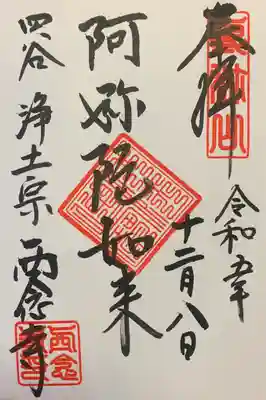 奉拝
令和五年
十二月八日
阿弥陀如来
四谷 浄土宗 西念寺